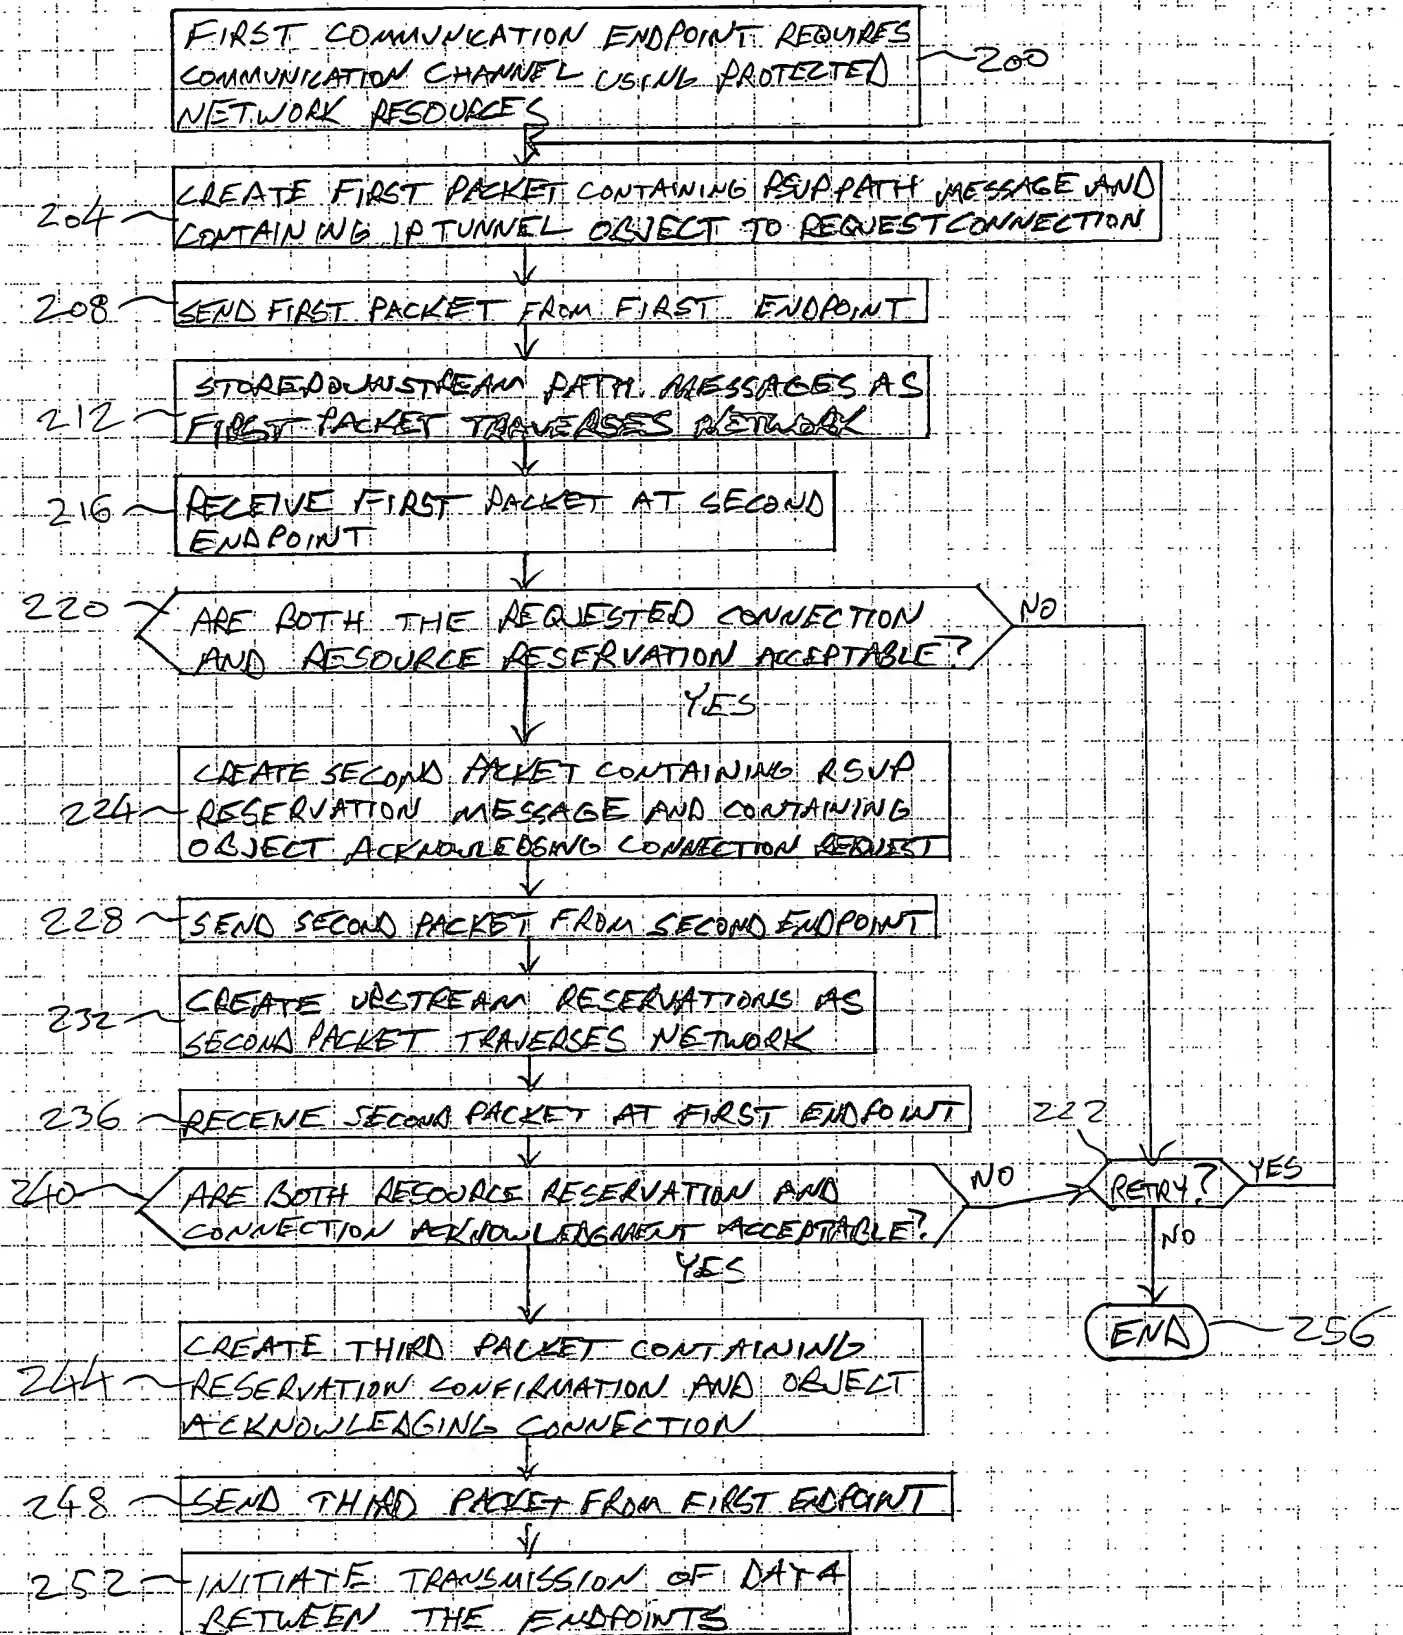 FIRST COMMUNICATION ENDPOINT REQUIRES
COMMUNICATION CHANNEL USING PROTECTED
NETWORK RESOURCES
200
204
CREATE FIRST PACKET CONTAINING RSVP PATH MESSAGE AND
CONTAINING IP TUNNEL OBJECT TO REQUEST CONNECTION
208
SEND FIRST PACKET FROM FIRST ENDPOINT
212
STORE DOWNSTREAM PATH MESSAGES AS
FIRST PACKET TRAVERSES NETWORK
216
RECEIVE FIRST PACKET AT SECOND
ENDPOINT
220
ARE BOTH THE REQUESTED CONNECTION
AND RESOURCE RESERVATION ACCEPTABLE?
NO
YES
224
CREATE SECOND PACKET CONTAINING RSVP
RESERVATION MESSAGE AND CONTAINING
OBJECT ACKNOWLEDGING CONNECTION REQUEST
228
SEND SECOND PACKET FROM SECOND ENDPOINT
232
CREATE UPSTREAM RESERVATIONS AS
SECOND PACKET TRAVERSES NETWORK
236
RECEIVE SECOND PACKET AT FIRST ENDPOINT
222
240
ARE BOTH RESOURCE RESERVATION AND
CONNECTION ACKNOWLEDGMENT ACCEPTABLE?
NO
RETRY?
YES
NO
YES
END
256
244
CREATE THIRD PACKET CONTAINING
RESERVATION CONFIRMATION AND OBJECT
ACKNOWLEDGING CONNECTION
248
SEND THIRD PACKET FROM FIRST ENDPOINT
252
INITIATE TRANSMISSION OF DATA
BETWEEN THE ENDPOINTS